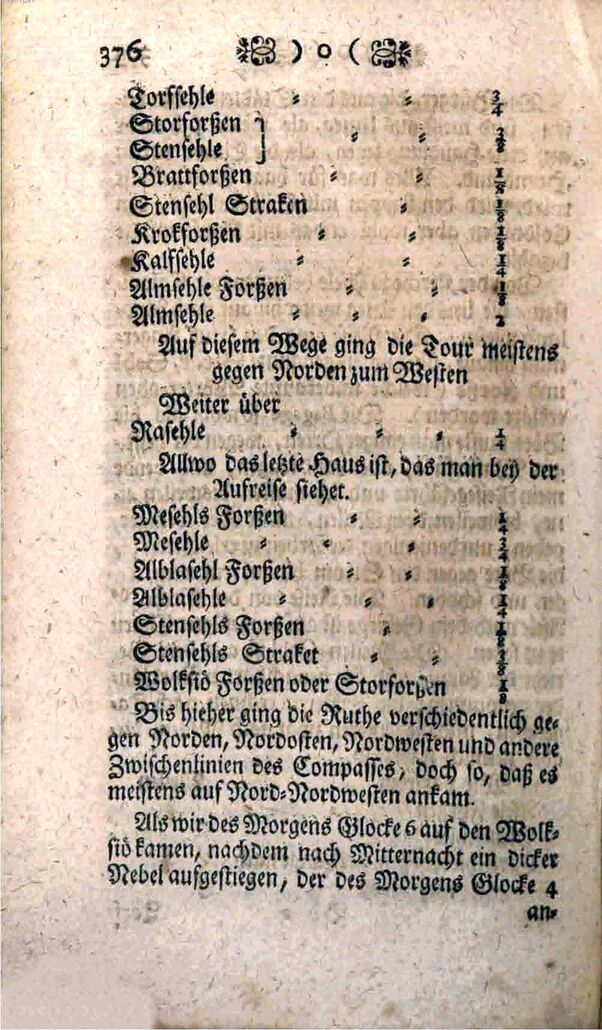 376 ) o (
Torfsehle ⸗ ⸗ 3/4
Storforßen
Stensehle } ⸗ ⸗ 3/8
Brattforßen ⸗ ⸗ 1/8
Stensehl Straken ⸗ 1/8
Krokforßen ⸗ ⸗ 1/8
Kalfsehle ⸗ ⸗ 1/4
Almsehle Forßen ⸗ ⸗ 1/8
Almsehle ⸗ ⸗ ⸗ 2
Auf diesem Wege ging die Tour meistens
gegen Norden zum Westen
Weiter über
Rasehle ⸗ ⸗ ⸗ 1/4
Allwo das letzte Haus ist, das man bey der
Aufreise siehet.
Mesehls Forßen ⸗ ⸗ 1/4
Mesehle ⸗ ⸗ ⸗ 3/4
Alblasehl Forßen ⸗ ⸗ 1/8
Alblasehle ⸗ ⸗ ⸗ 1/4
Stensehls Forßen ⸗ 1/8
Stensehls Straket ⸗ ⸗ 3/8
Wolksiö Forßen oder Storforßen 1/8
Bis hieher ging die Ruthe verschiedentlich ge⸗
gen Norden, Nordosten, Nordwesten und andere
Zwischenlinien des Compasses, doch so, daß es
meistens auf Nord⸗Nordwesten ankam.
Als wir des Morgens Glocke 6 auf den Wolk⸗
siö kamen, nachdem nach Mitternacht ein dicker
Nebel aufgestiegen, der des Morgens Glocke 4
an⸗